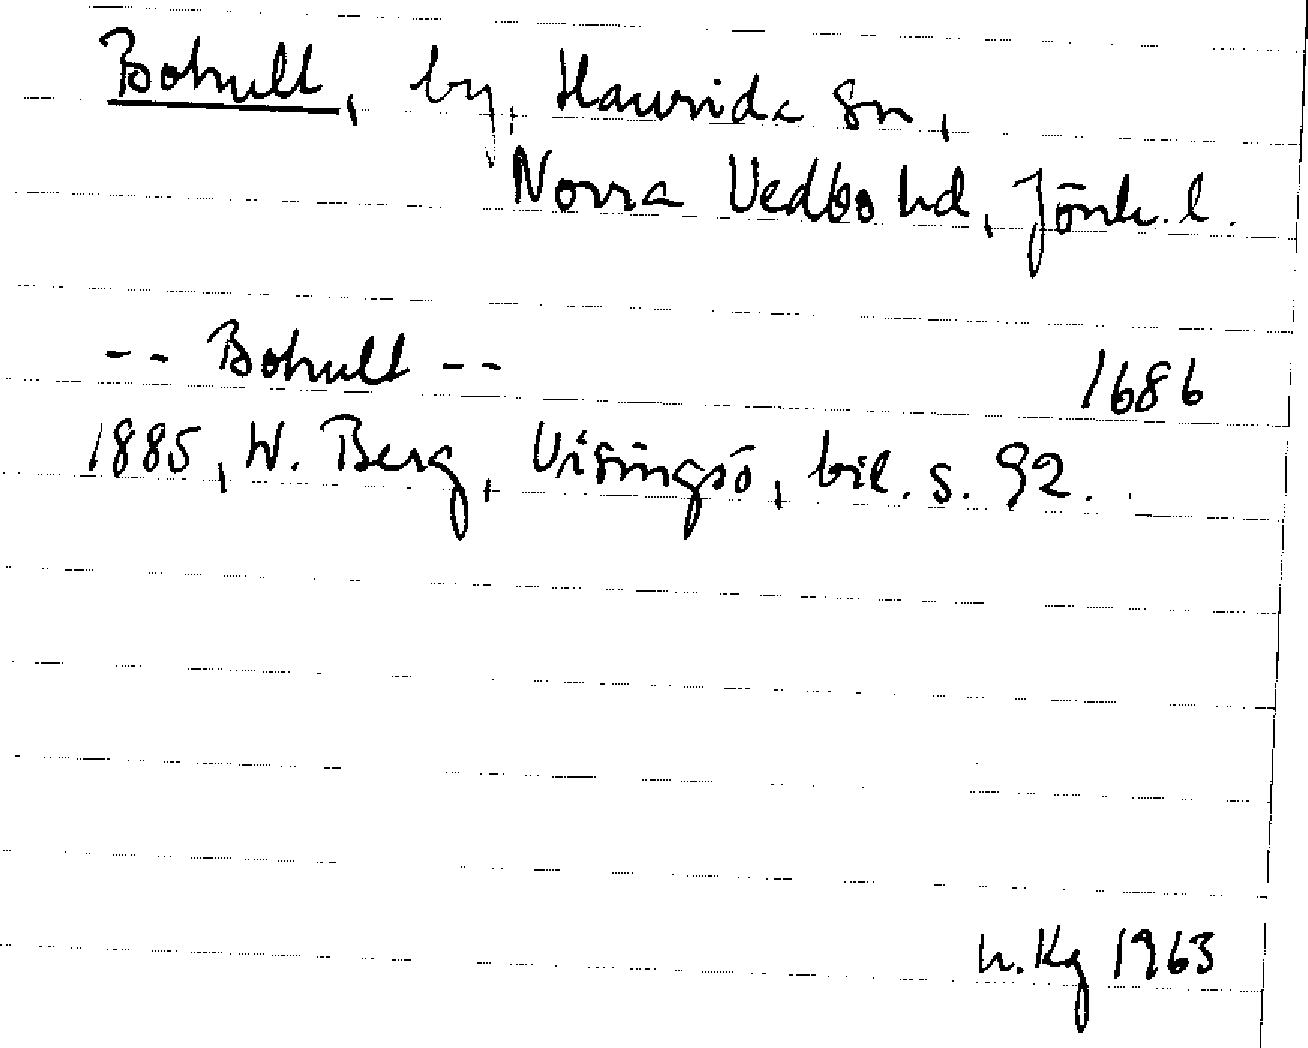 Bohult, by, Haurida sn,
Norra Vedbo hd, Jönk. l.
-- Bohult -- 1686
1885, W. Berg, Visingsö, bil. s. 92.
h. Kg 1963